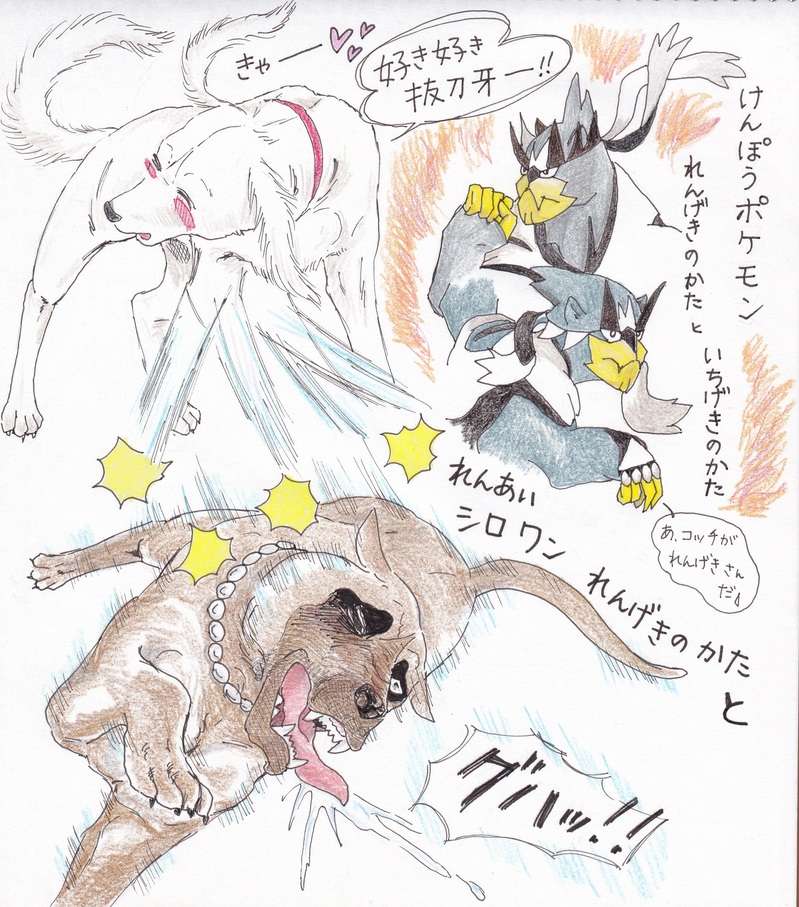 きゃー
好き好き
抜刀牙ー!!
けんぽうポケモン
れんげきのかたと
いちげきのかた
あ、コッチが
れんげきさん
だ。
れんあい
シロワン
れんげきのかた
と
グハッ!!